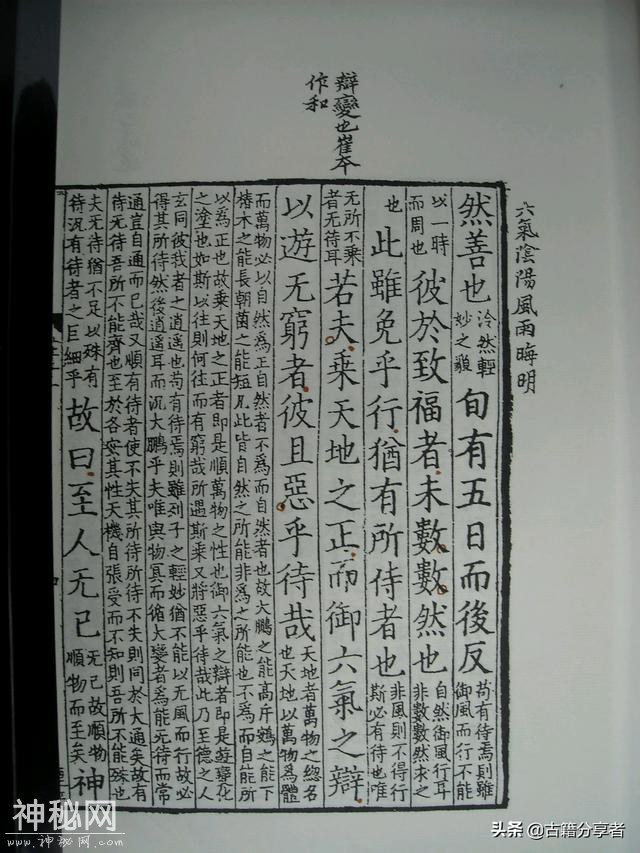 六氣陰陽風雨晦明
辯變也崔本
作和
然善也
泠然輕
妙之貌
旬有五日而後反
苟有待焉則雖
御風而行不能
以一時
而周也
彼於致福者未數數然也
自然御風行耳
非數數然求之
也
此雖免乎行猶有所待者也
非風則不得行
斯必有待也唯
无所不乘
者无待耳
若夫乘天地之正而御六氣之辯
以遊无窮者彼且惡乎待哉
天地者萬物之總名
也天地以萬物爲體
而萬物必以自然爲正自然者不爲而自然者也故大鵬之能高斥鴳之能下
椿木之能長朝菌之能短凡此皆自然之所能非爲之所能也不爲而自能所
以爲正也故乘天地之正者即是順萬物之性也御六氣之辯者即是遊變化
之塗也如斯以往則何往而有窮哉所遇斯乘又將惡乎待哉此乃至德之人
玄同彼我者之逍遙也苟有待焉則雖列子之輕妙猶不能以无風而行故必
得其所待然後逍遙耳而況大鵬乎夫唯與物冥而循大變者爲能无待而常
通豈自通而已哉又順有待者使不失其所待所待不失則同於大通矣故有
待无待吾所不能齊也至於各安其性天機自張受而不知則吾所不能殊也
夫无待猶不足以殊有
待況有待者之巨細乎
故曰至人无己
无己故順物
順物而至矣
神
神秘网
www.神秘网.com
头条 @古籍分享者